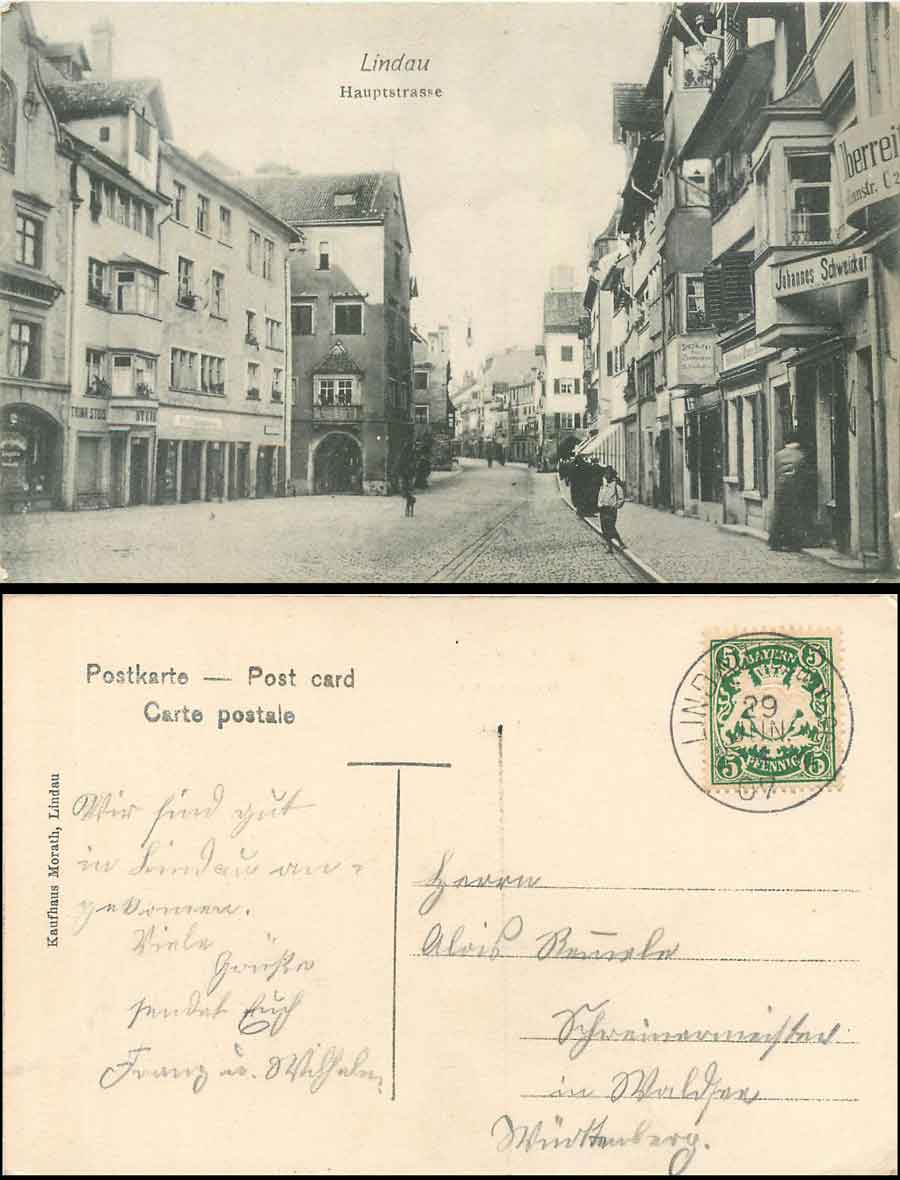 Lindau
Hauptstrasse
Oberreit
Johannes Schweicker
Postkarte — Post card
Carte postale
Kaufhaus Morath, Lindau
BAYERN
5 5
PFENNIG
5 5
29
JUN.
07
Wir sind gut
in Lindau an-
gekomen.
Viele
Grüße
sendet Euch
Franz u. Wilhelm
Herrn
Alois
Schreinermeister
in Waldsee
Württemberg.